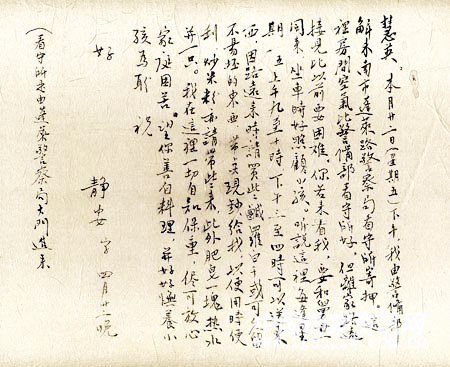 慧英：本月廿一日(星期五)下午我由警備部
解来南市蓬萊路警察局看守所寄押。這
裡房間空氣比警備部看守所好，但離家路遠
接見比以前要困难，你若来看我，要和
同来，坐車時好照顧小孩。听說這裡每逢星
期一、五上午九至十時，下午三至四時可以送東
西，因路遠来時請買些鹹羅白干或可久留
不易壞的東西，帶点現鈔給我，以便用時便
利，炒米粉亦請帶些来，此外肥皂一塊热水
瓶一只。我在這裡一切自知保重，尽可放心
家庭困苦，望你善自料理，并好好撫養小
孩為耿 祝
好
靜安 字 四月廿二晚
(看守所是由蓬萊警察局大門進来)